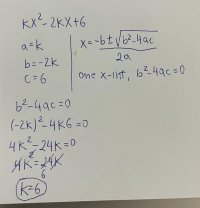 kx²-2kx+6
a=k
b=-2k
c=6
x=-b±√b²-4ac
2a
one x-int, b²-4ac=0
b²-4ac=0
(-2k)²-4k6=0
4k²-24k=0
4k²=24k
6
k=6